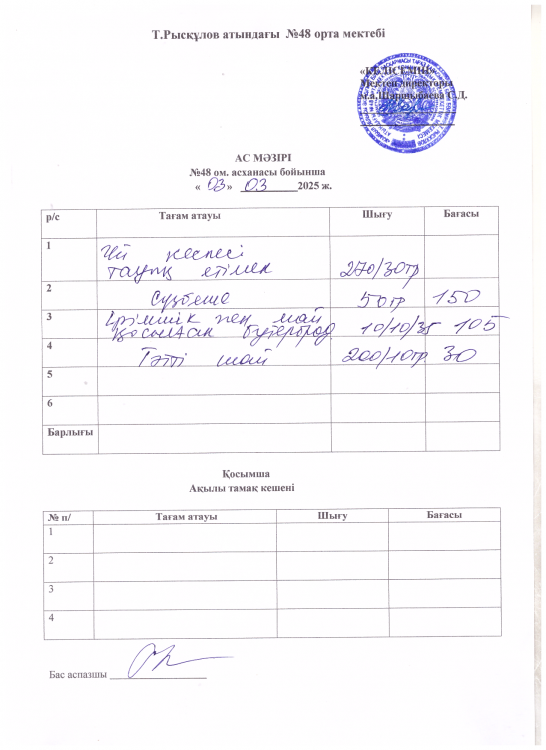 Т.Рысқұлов атындағы №48 орта мектебі
«КЕЛІСЕМІН»
Мектеп директоры
АС МӘЗІРІ
№48 ом. асханасы бойынша
« 03 » 03 2025 ж.
р/с Тағам атауы Шығу Бағасы
1 Үй кеспесі
тауық етімен 270/30гр
2 Сүзбеше 50гр 150
3 Ірімшік пен май
қосылған бутерброд 10/10/35 105
4 Тәтті шай 200/10гр 30
5
6
Барлығы
Қосымша
Ақылы тамақ кешені
№ п/ Тағам атауы Шығу Бағасы
1
2
3
4
Бас аспазшы